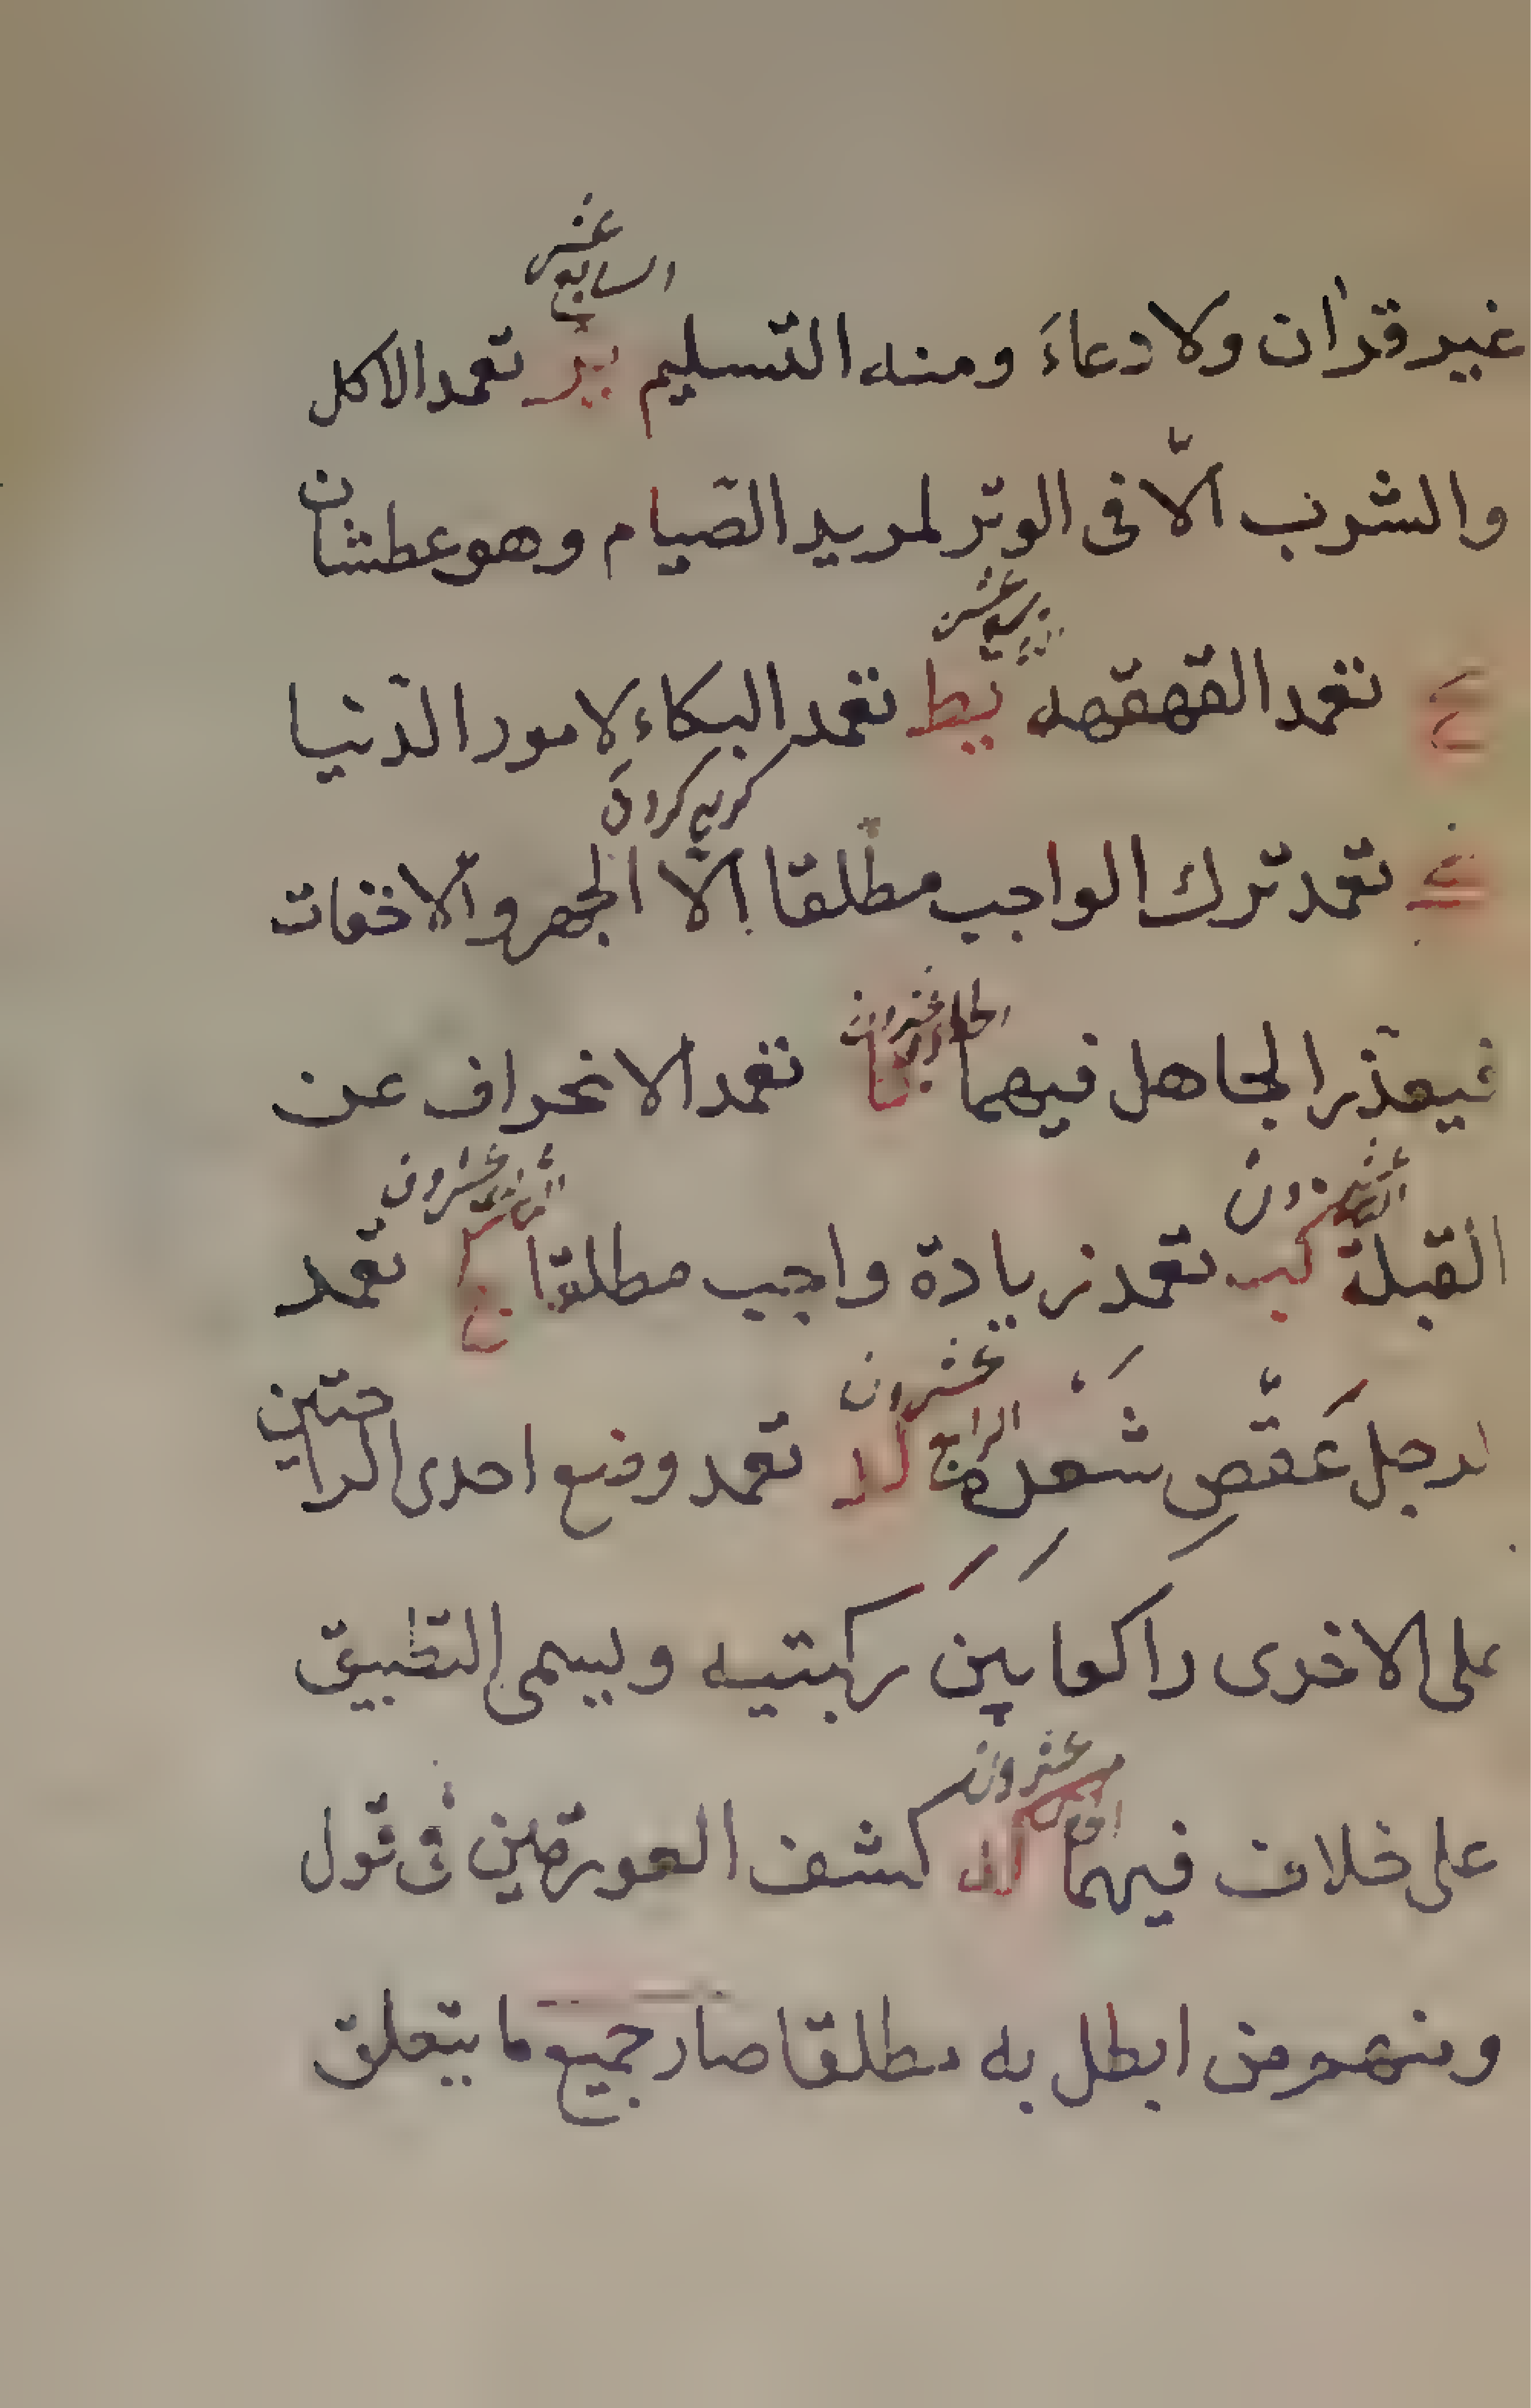 السابع عشر
غير قرآن ولا دعاءَ ومنه التسليم يز تعمد الاكل
والشرب الّا فى الوتر لمريد الصّيام وهو عطشان
عشر
تعمد القهقهه يط تعمد البكاء لامور الدّنيا
كريه كردن
تعمد ترك الواجب مطلقا الّا الجهر والّاخفات
فيعذر الجاهل فيهما كا تعمد الانحراف عن
عشرون
القبلة كب تعمد زيادة واجب مطلقا كج تعمد
الرابع عشرون
لرجل عَقّصِ شَعره كد تعمد وضع احدى الراحتين
على الاخرى راكعا بين ركبتيه ويسمى التطبيق
عشرون
على خلاف فيهما كه كشف العورة من فى قول
ومنهم من ابطل به مطلقا صار جميع ما يتعلق